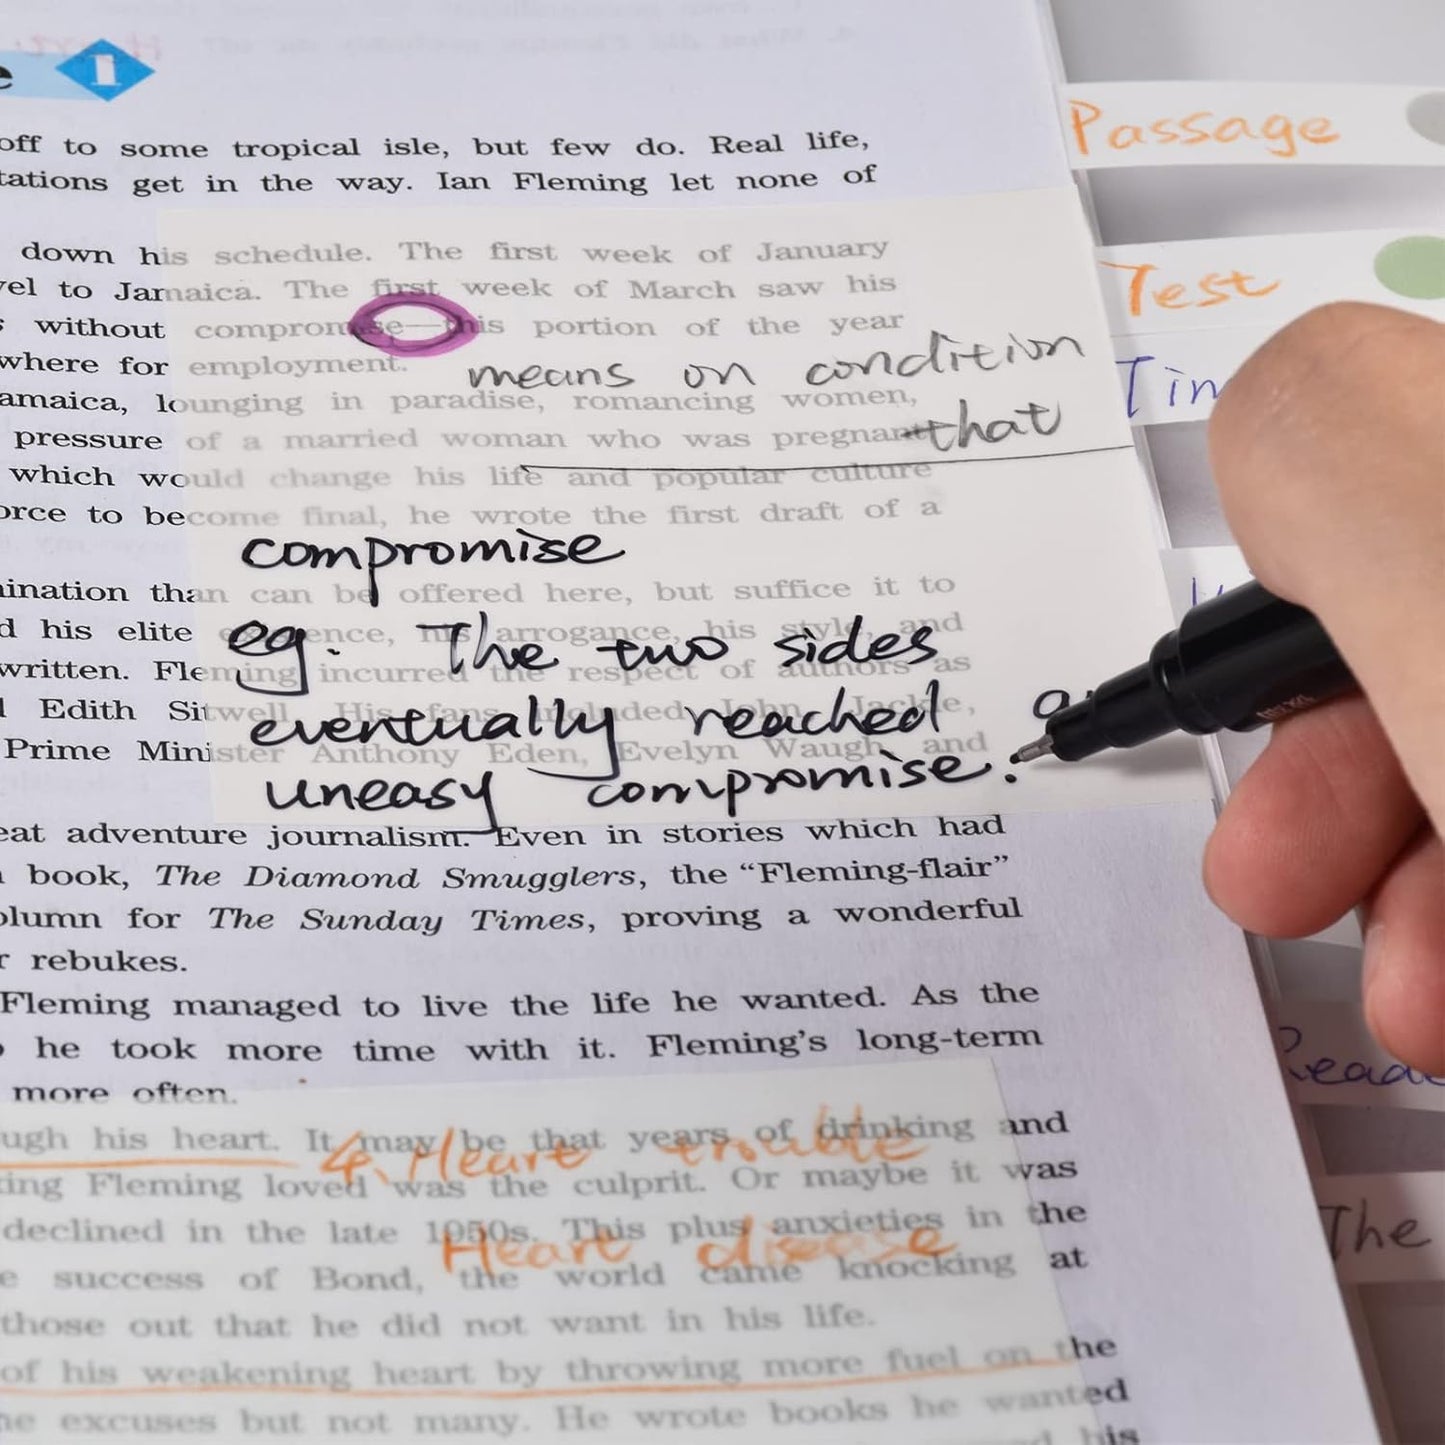 1
off to some tropical isle, but few do. Real life,
get in the way. Ian Fleming let none of
down his schedule. The first week of January
to Jamaica. The first week of March saw his
without compromise—this portion of the year
where for employment.
means on condition
that
lounging in paradise, romancing women,
pressure of a married woman who was pregnant
which would change his life and popular culture
to become final, he wrote the first draft of a
compromise
than can be offered here, but suffice it to
his elite arrogance, his style, and
eg. The two sides
written. Fleming incurred the respect of authors as
Edith Sitwell. His fans included John Jackle,
eventually reached a
Prime Minister Anthony Eden, Evelyn Waugh, and
uneasy compromise.
adventure journalism. Even in stories which had
book, The Diamond Smugglers, the “Fleming-flair”
for The Sunday Times, proving a wonderful
rebukes.
Fleming managed to live the life he wanted. As the
he took more time with it. Fleming's long-term
more often.
his heart. It may be that years of drinking and
4. Heart trouble
Fleming loved was the culprit. Or maybe it was
declined in the late 1950s. This plus anxieties in the
Heart disease
success of Bond, the world came knocking at
those out that he did not want in his life.
of his weakening heart by throwing more fuel on the
excuses but not many. He wrote books he wanted
his
Passage
Test
The